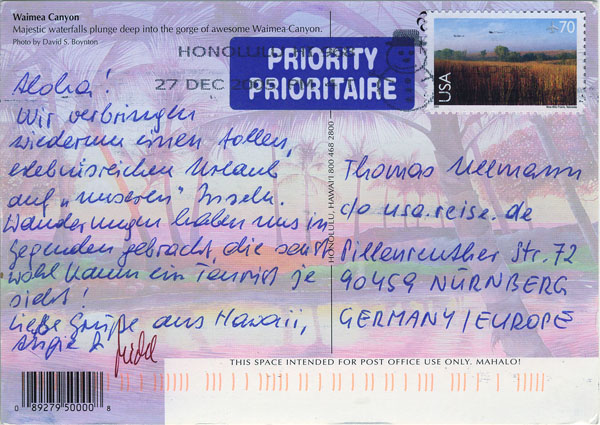 Waimea Canyon
Majestic waterfalls plunge deep into the gorge of awesome Waimea Canyon.
Photo by David S. Boynton
HONOLULU, HI 968
27 DEC 2005 PM
PRIORITY
PRIORITAIRE
70
USA
Aloha!
Wir verbringen
wiederum einen tollen,
erlebnisreichen Urlaub
auf „unseren" Inseln.
Wanderungen haben uns in
Gegenden gebracht, die sonst
wohl kaum ein Tourist je
sieht!
Liebe Grüße aus Hawaii,
Angie &
HONOLULU, HAWAI'I 800 468 2800
Thomas Ullmann
c/o usa.reise.de
Pillenreuther Str. 72
90459 NÜRNBERG
GERMANY/EUROPE
THIS SPACE INTENDED FOR POST OFFICE USE ONLY. MAHALO!
0 89279 50000 8